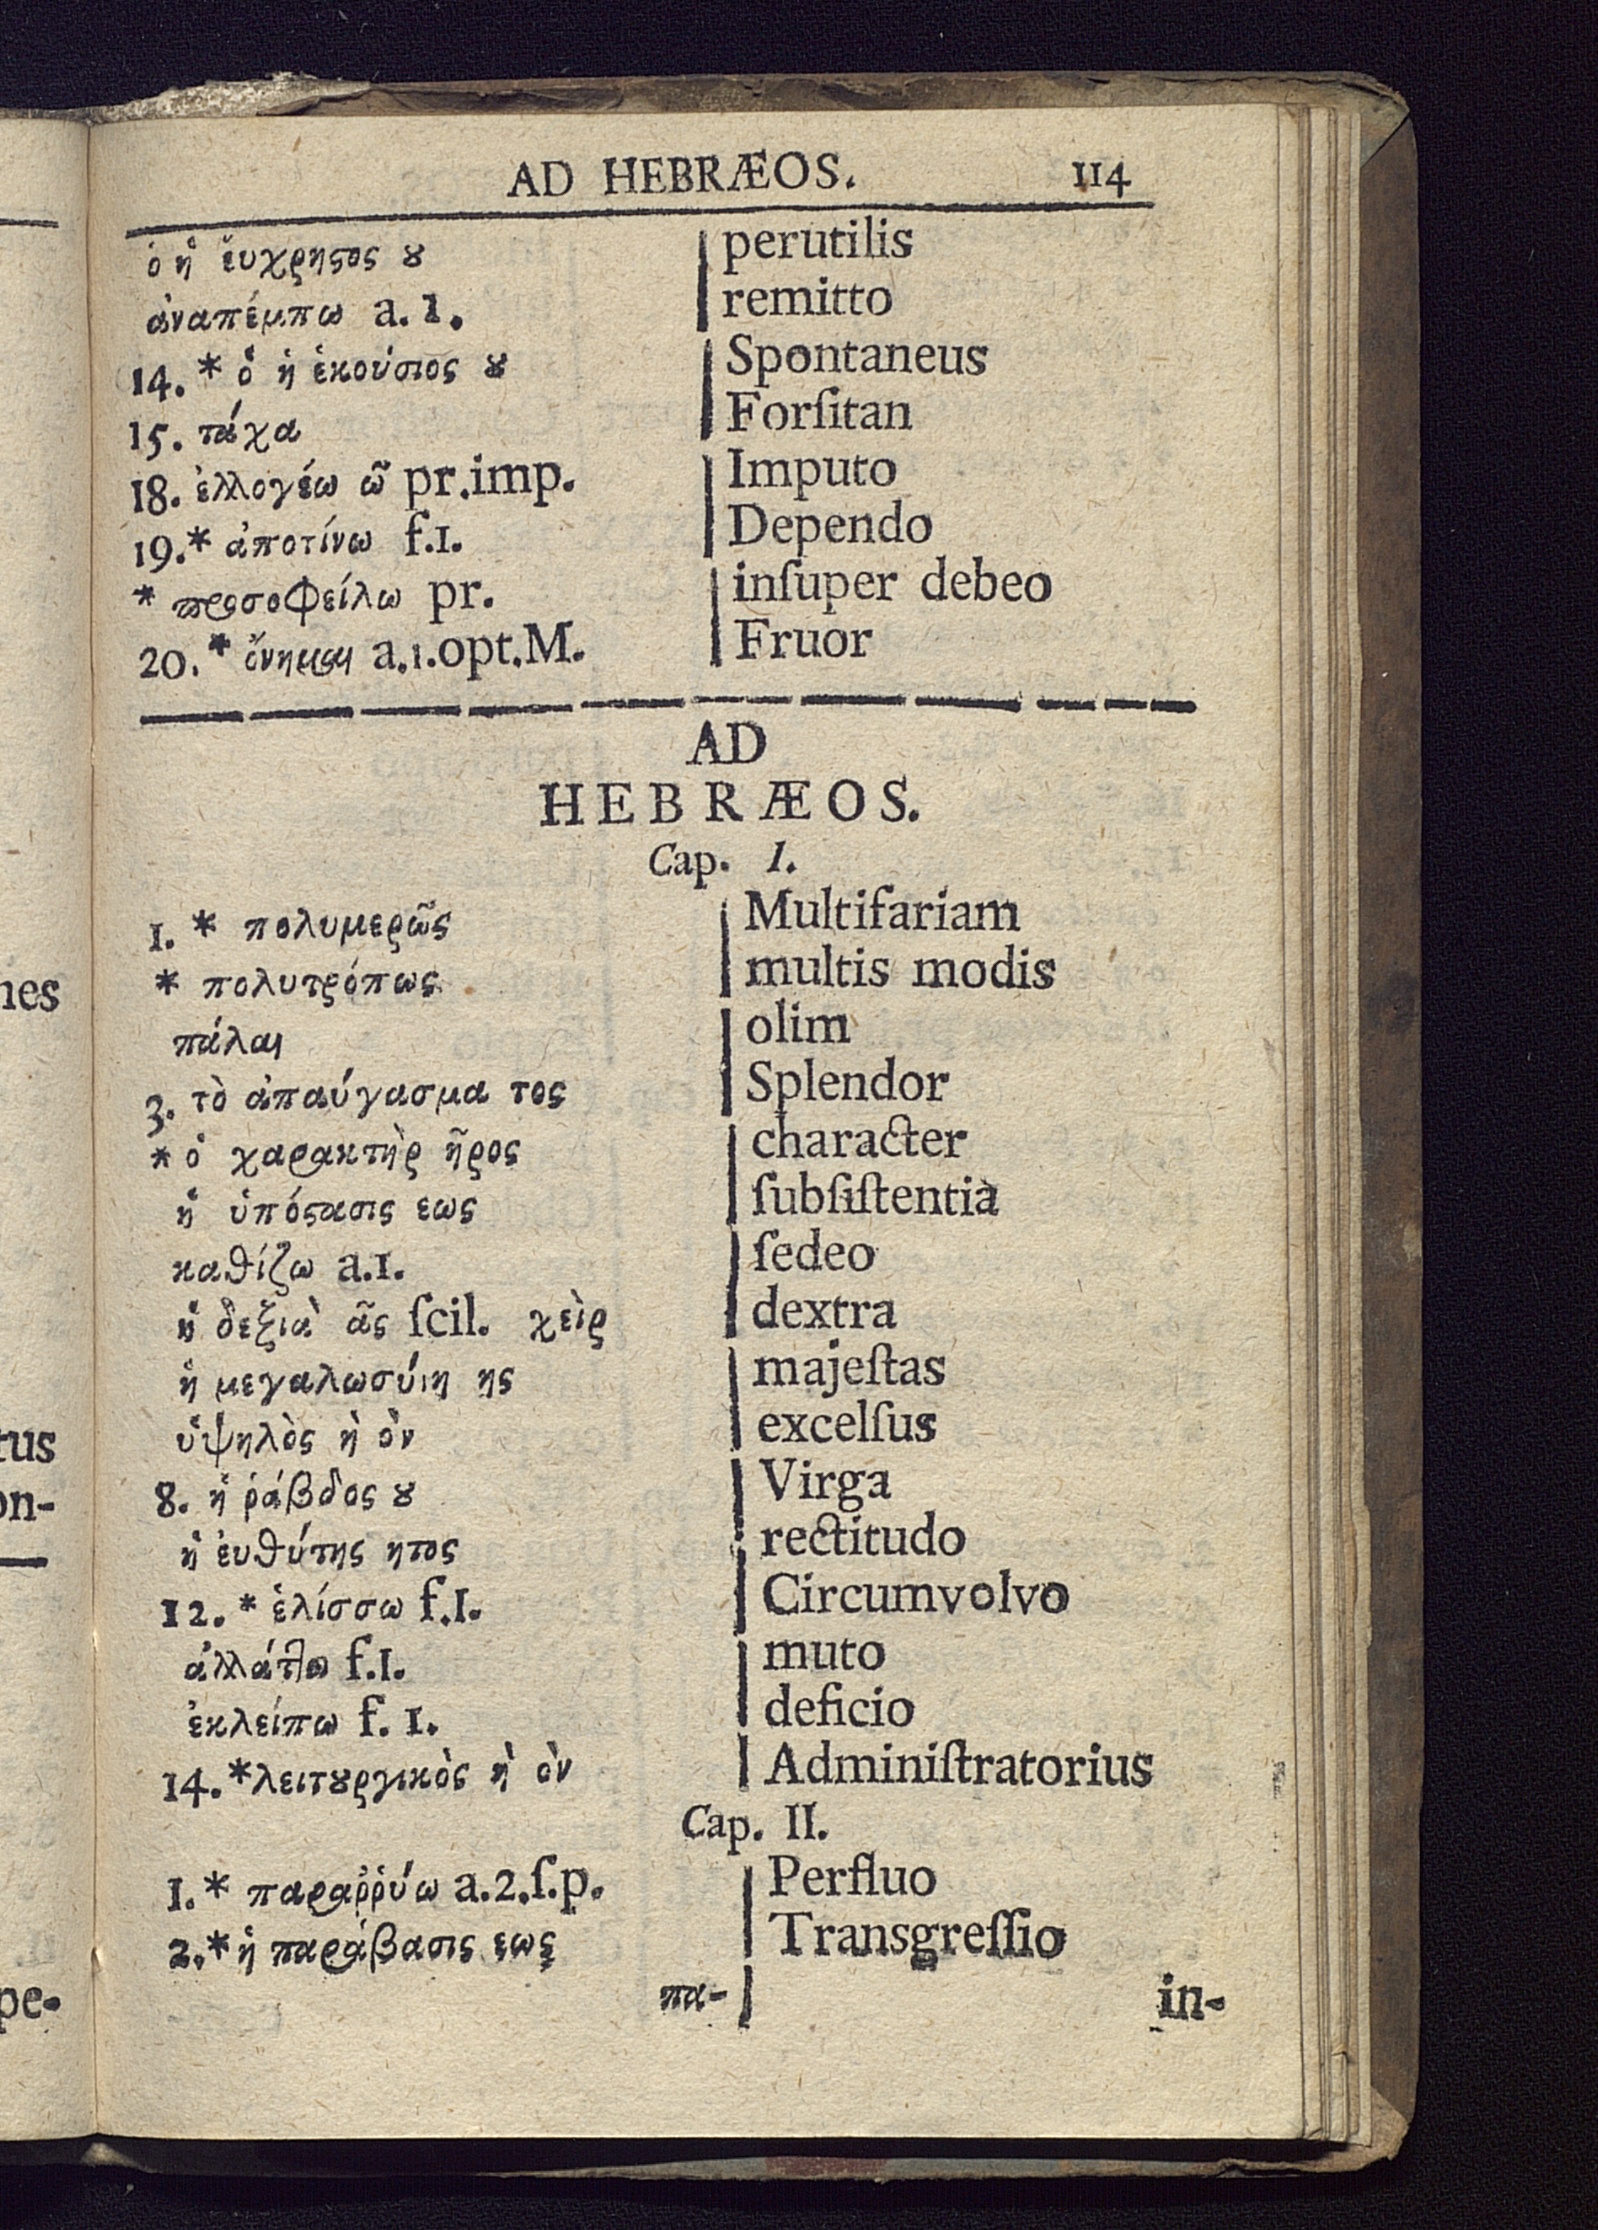 AD HEBRÆOS. 114
ὁ ἡ ἔυχρηϛος ȣ perutilis
ἀναπέμπω a. 1. remitto
14. * ὁ ἡ ἑκούσιος ȣ Spontaneus
15. τάχα Forſitan
18. ἐλλογέω ῶ pr.imp. Imputo
19.* ἀποτίνω f.1. Dependo
* προσοφείλω pr. inſuper debeo
20.* ὄνημαι a.1.opt.M. Fruor
AD
HEBRÆOS.
Cap. I.
1. * πολυμερῶς Multifariam
* πολυτρόπως multis modis
πάλαι olim
3. τὸ ἀπαύγασμα τος Splendor
* ὁ χαρακτὴρ ῆρος character
ἡ ὑπόϛασις εως ſubſiſtentia
καθίζω a.1. ſedeo
ἡ δεξιὰ ᾶς ſcil. χεὶρ dextra
ἡ μεγαλωσύνη ης majeſtas
ὑψηλὸς ὴ ὸν excelſus
8. ἡ ῥάβδος ȣ Virga
ἡ ἐυθύτης ητος rectitudo
12. * ἑλίσσω f.1. Circumvolvo
ἀλλάττω f.1. muto
ἐκλείπω f. 1. deficio
14. *λειτȣργικὸς ὴ ὸν Adminiſtratorius
Cap. II.
1.* παραῤῥύω a.2.ſ.p. Perfluo
2.* ἡ παράβασις εως Transgreſſio
πα- in-
nes
tus
on-
pe-